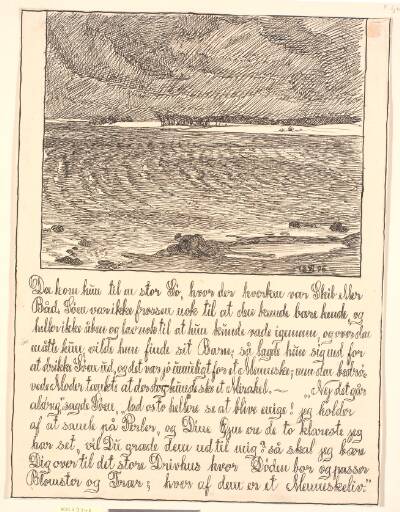 Da kom hun til en stor Sø, hvor der hverken var Skib eller
Båd. Søen var ikke frossen nok til at den kunde bære hende og
heller ikke åben og lav nok til at hun kunde vade igennem, og over den
måtte hun, vilde hun finde sit Barn; så lagde hun sig ned for
at drikke Søen ud, og det var jo umuligt for et Menneske; men den bedrø-
vede Moder tænkte at der dog kunde ske et Mirakel. ~ „Nej det går
aldrig" sagde Søen, „lad os to hellere se at blive enige! jeg holder
af at samle på Perler, og Dine Øjne ere de to klareste jeg
har set, vil Du græde dem ud til mig? så skal jeg bære
Dig over til det store Drivhus hvor Døden bor og passer
Blomster og Træer; hver af dem er et Menneskeliv."